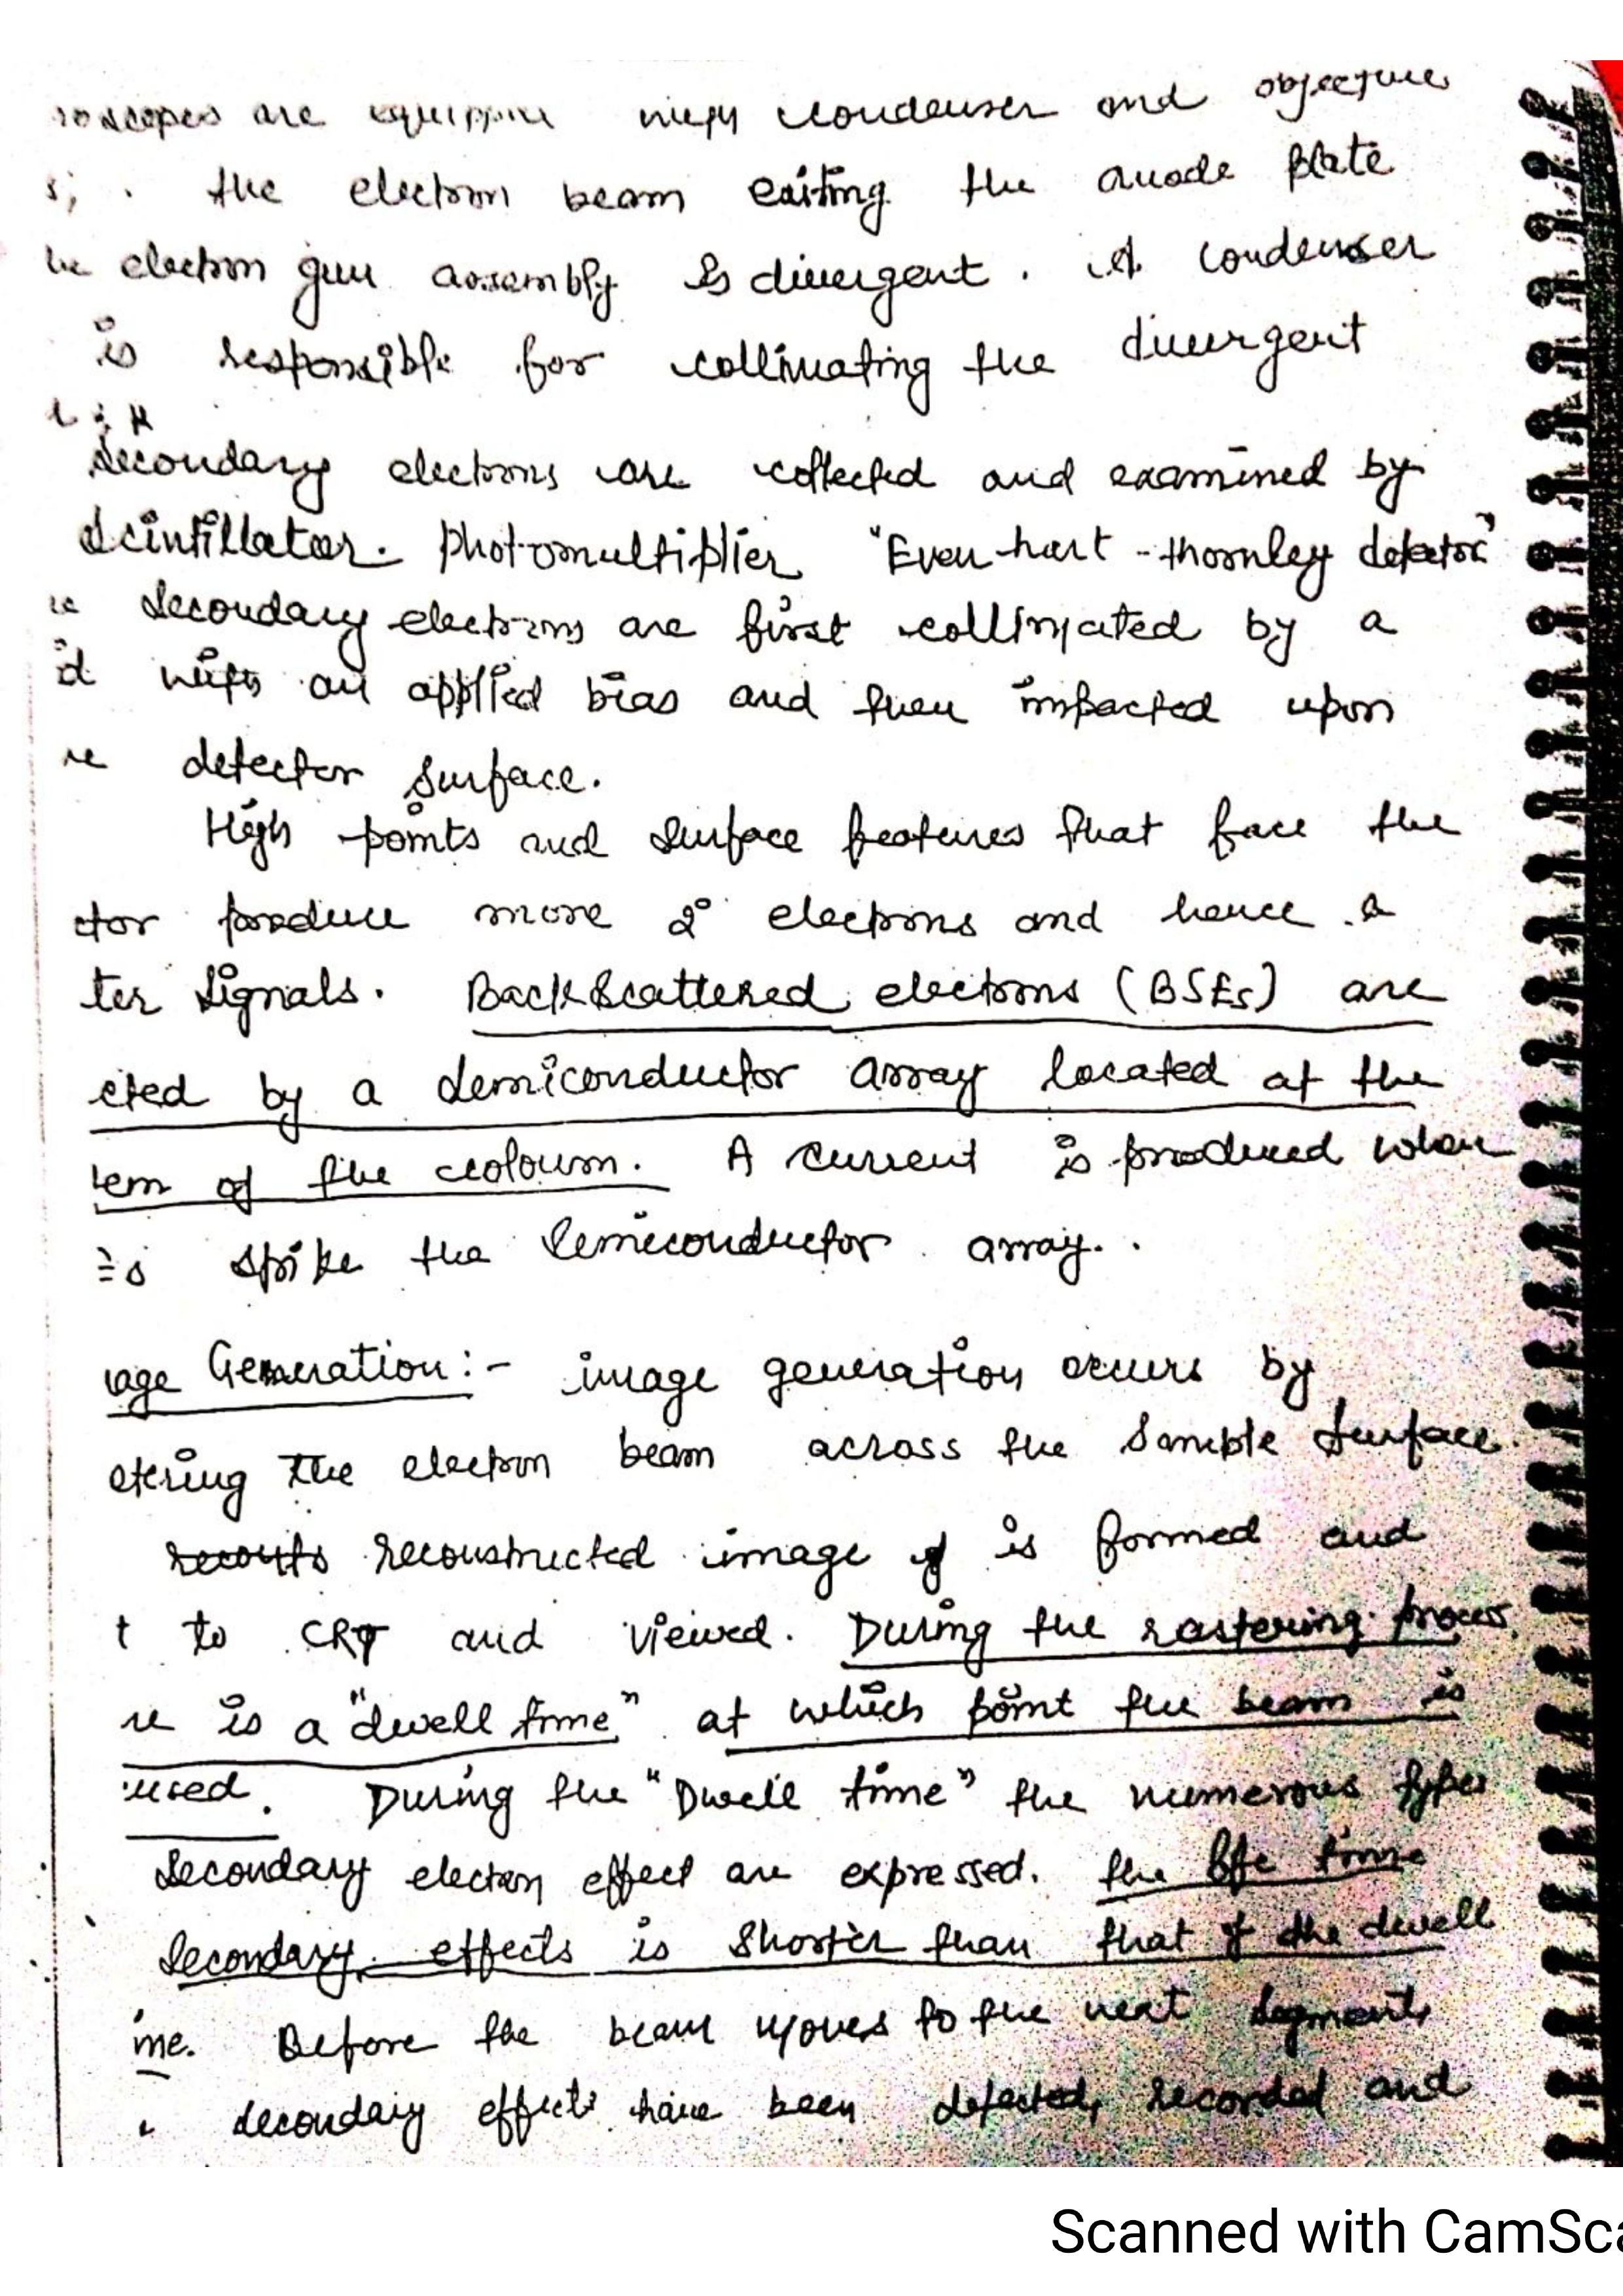 roscopes are equippin with condenser and objective
s; . the electron beam exiting the anode plate
he electron gun assembly is divergent. A condenser
is responsible for collimating the divergent
Secondary electrons are collected and examined by
Scintillator. photomultiplier "Even hart - thornley detector"
re Secondary electrons are first collimated by a
id with an applied bias and then impacted upon
re detector surface.
High points and surface features that face the
ctor produce more 2° electrons and hence a
ter signals. BackScattered electrons (BSEs) are
cted by a Semiconductor array located at the
tem of the coloum. A current is produced when
Es strike the Semiconductor array.
age Generation:- image generation occurs by
stering the electron beam across the Sample Surface.
reconstructed image of is formed and
t to CRT and viewed. During the rastering process,
re is a "dwell time" at which point the beam is
used. During the "Dwell time" the numerous types
Secondary electon effect are expressed. the life time
Secondary effects is Shorter than that of the dwell
me. Before the beam moves to the next segment,
secondary effects have been detected, recorded and
Scanned with CamSca